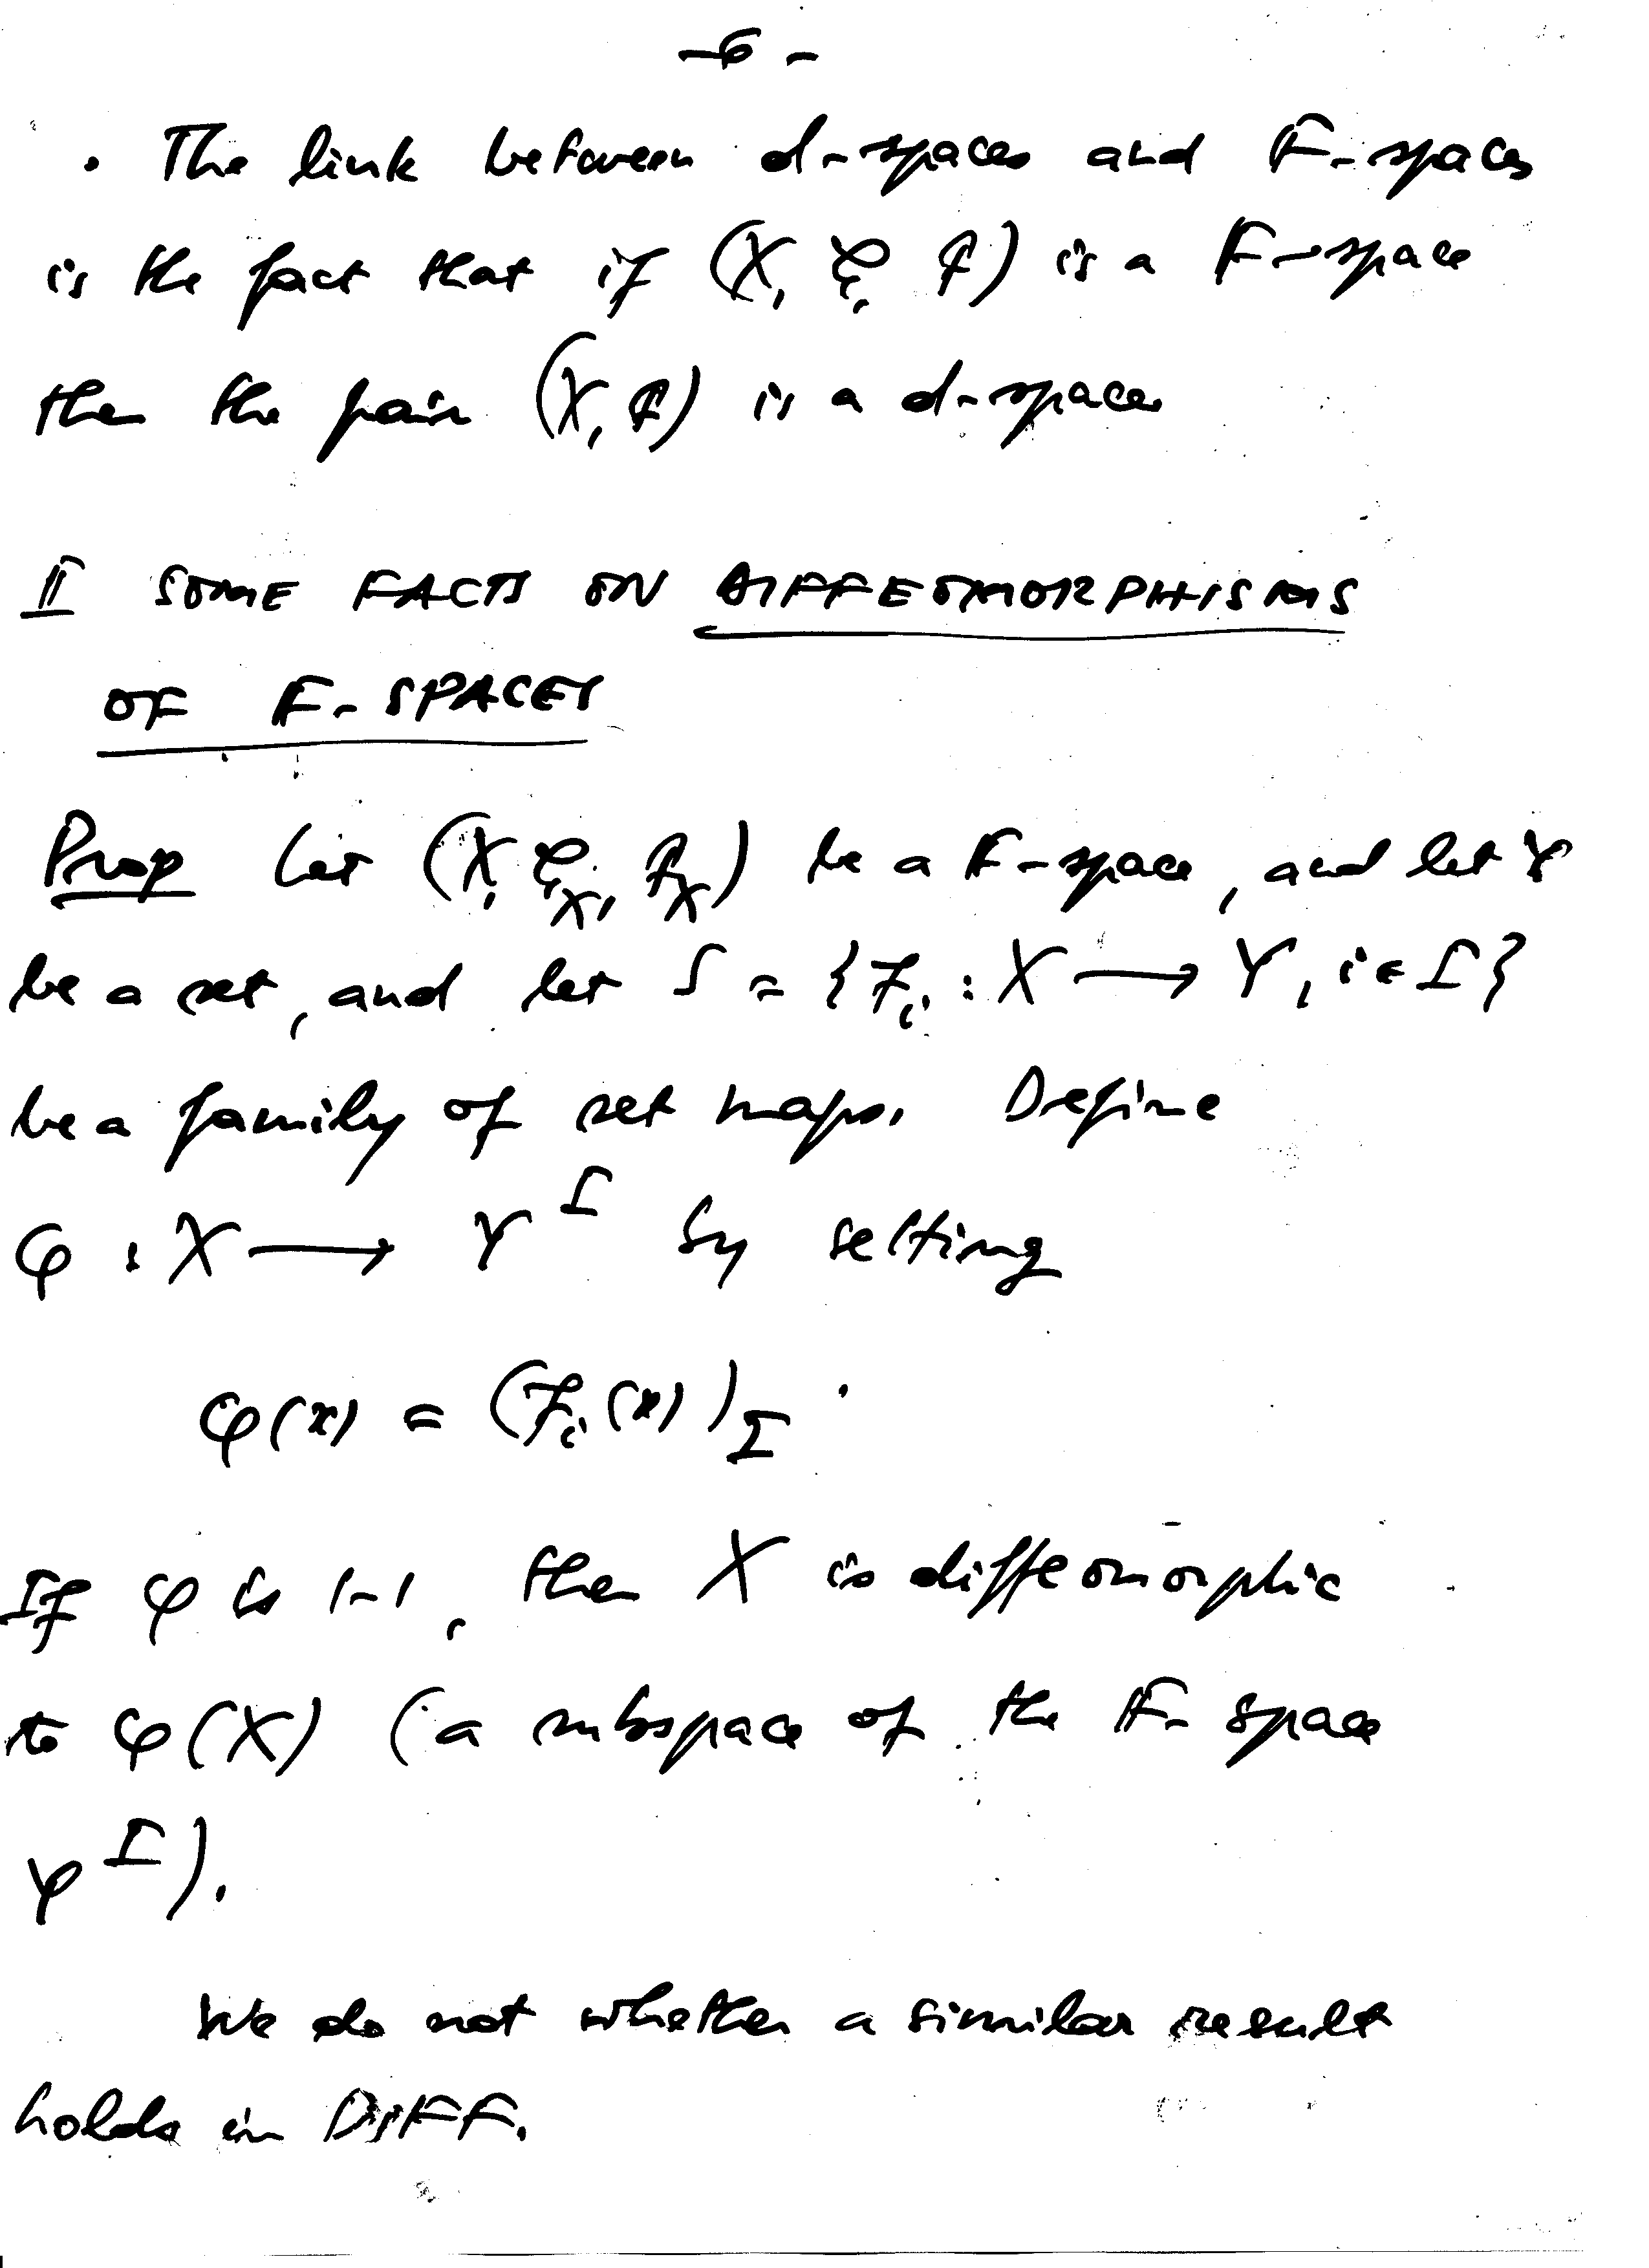 -6-
. The link between d-spaces and F-spaces
is the fact that if (X, C, F) is a F-space
then the pair (X, F) is a d-space
II SOME FACTS ON DIFFEOMORPHISMS
OF F-SPACES
Prop Let (X, C_X, F_X) be a F-space, and let Y
be a set, and let S = {f_i : X ⟶ Y, i ∈ I}
be a family of set maps. Define
φ : X ⟶ Y^I by setting
φ(x) = (f_i(x))_I .
If φ is 1-1, then X is diffeomorphic
to φ(X) (a subspace of the F-space
Y^I).
We do not whether a similar result
holds in DIFF.